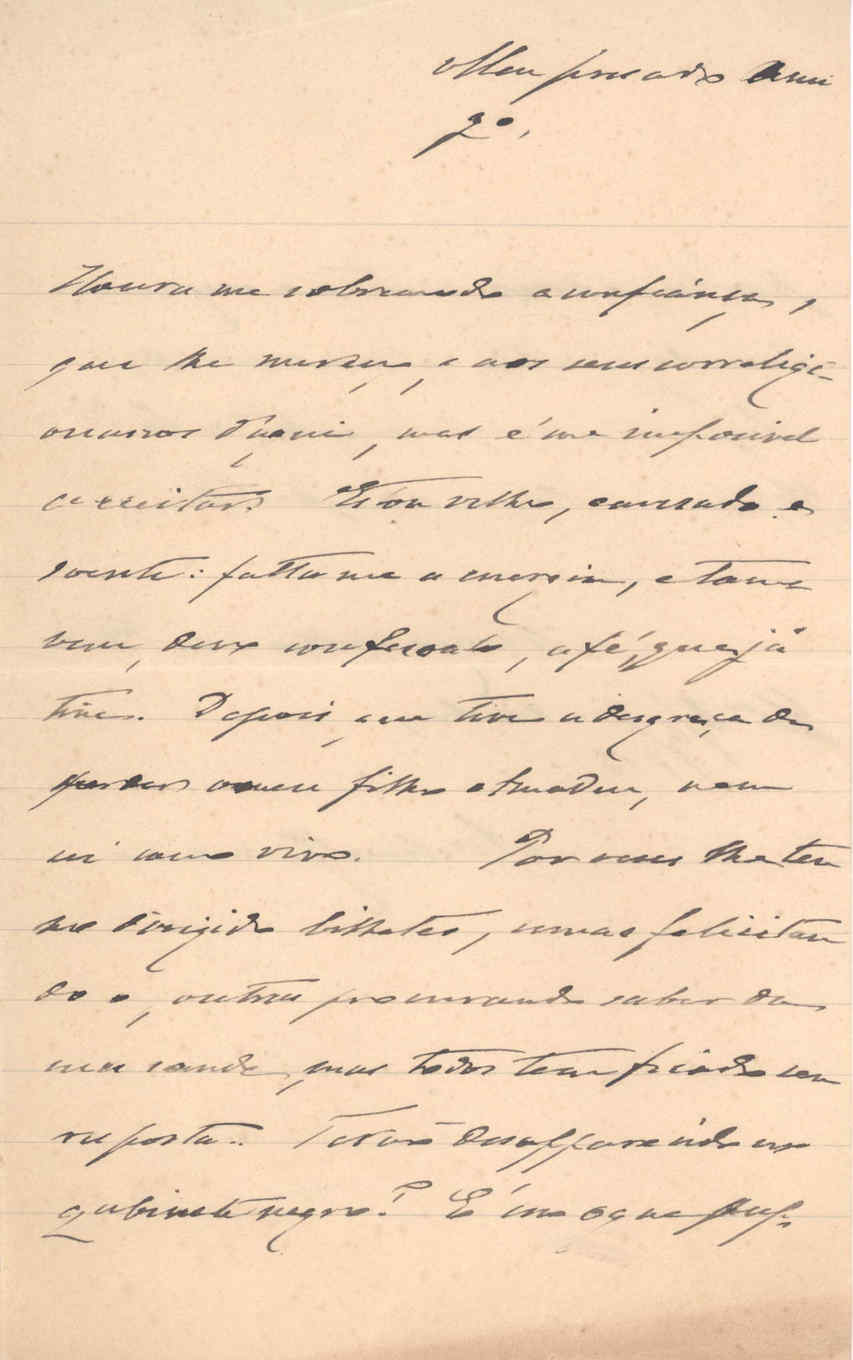 Meu presado Ami
go,
Honra me sobremodo a confiança,
que lhe mereço, e aos seus correligi-
onarios d'aqui, mas é me impossivel
acceitar. Estou velho, cansado e
doente: falta me a energia, e tam-
bem, devo confessal-o, a fé, que já
tive. Depois que tive a desgraça de
perder o meu filho estrodeu, nem
sei como vivo. Por vezes lhe ten
ho dirigido bilhetes, umas felicitan
do o, outras procurando saber da
sua saude, mas todos tem ficado sem
resposta. Terão desapparecido no
gabinete negro? É isso o que sup-